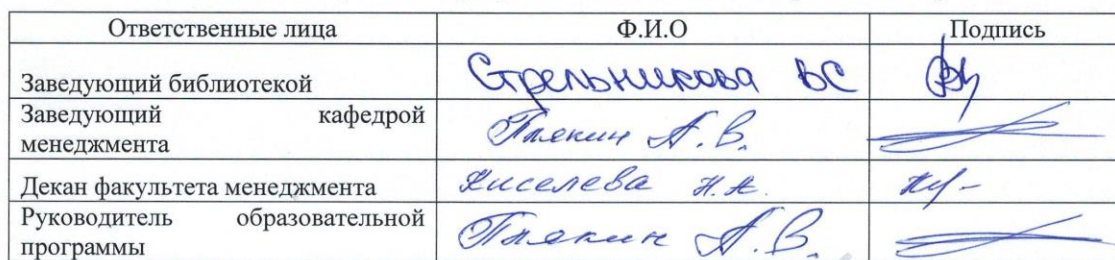 Ответственные лица Ф.И.О Подпись
Заведующий библиотекой Стрельникова ВС
Заведующий кафедрой
менеджмента Плякин А.В.
Декан факультета менеджмента Киселева Н.Н.
Руководитель образовательной
программы Плякин А.В.